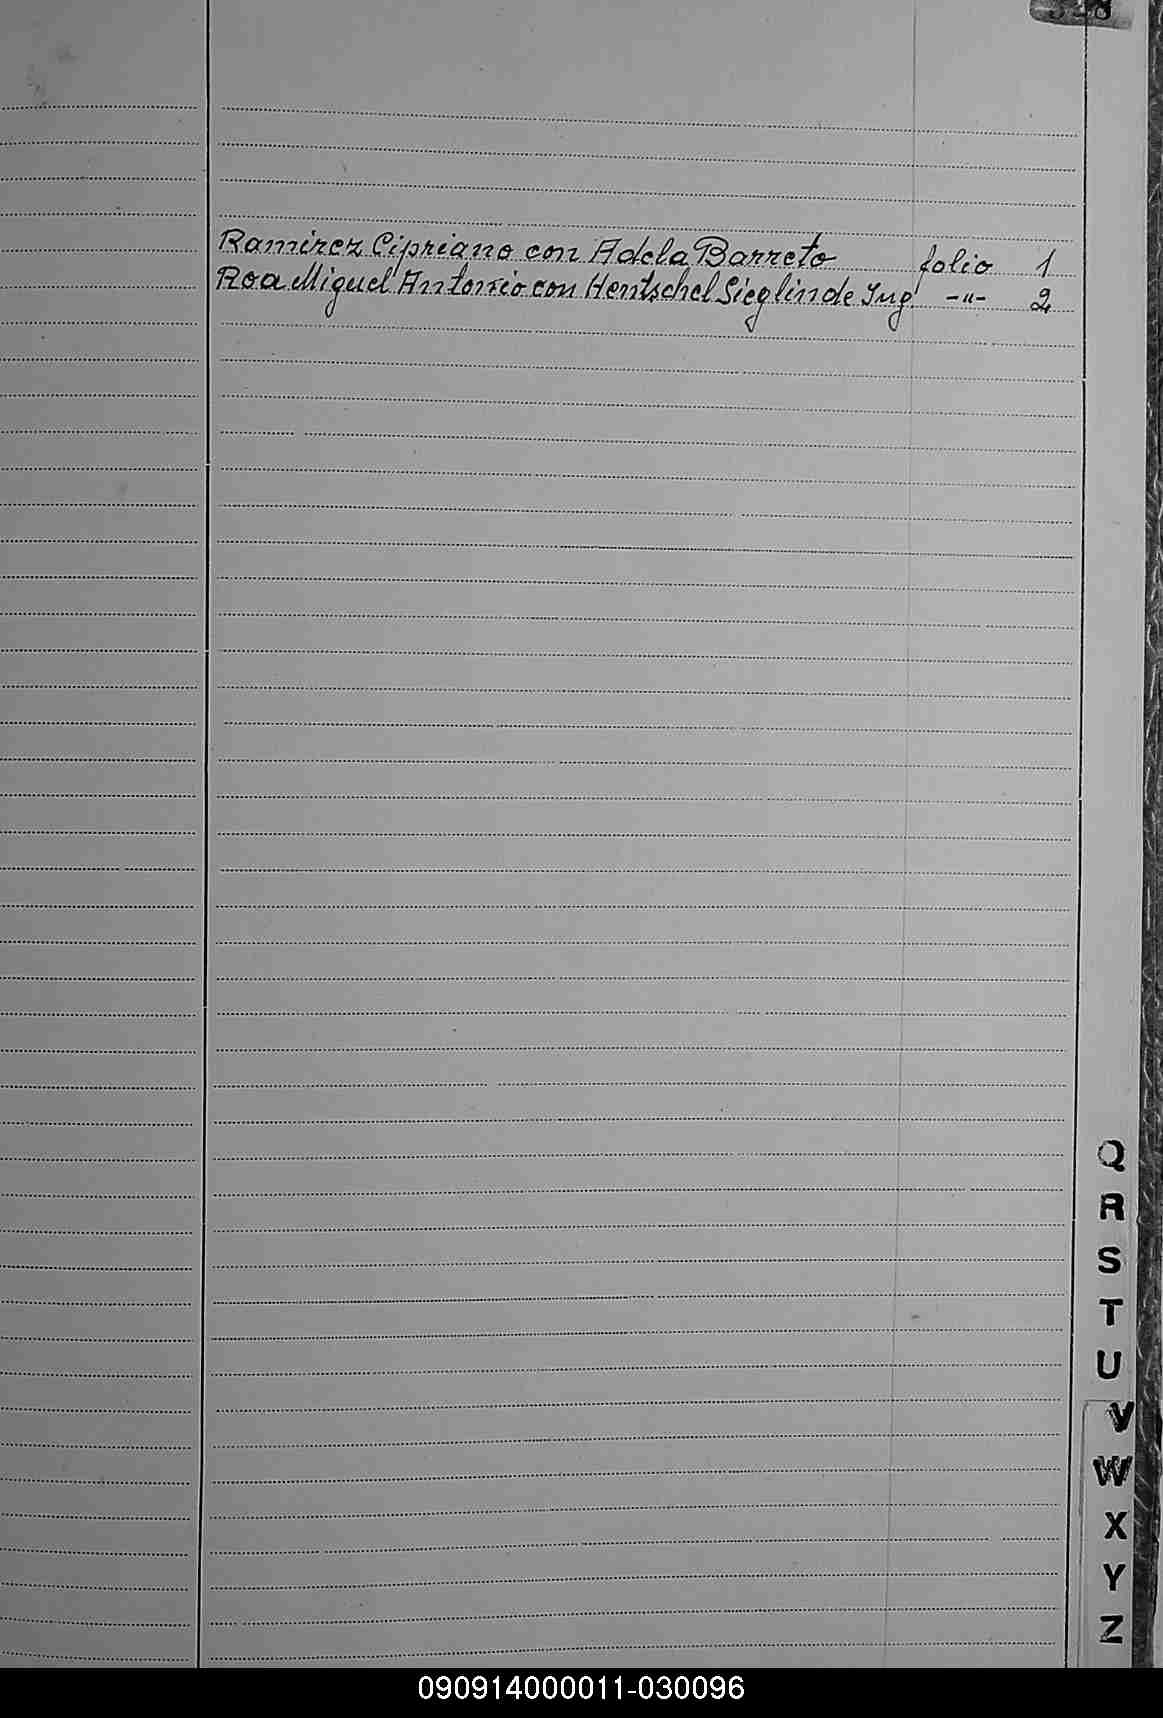 Ramirez Cipriano con Adela Barreto folio 1
Roa Miguel Antonio con Hentschel Sieglinde Ing -"- 2
Q
R
S
T
U
V
W
X
Y
Z
090914000011-030096